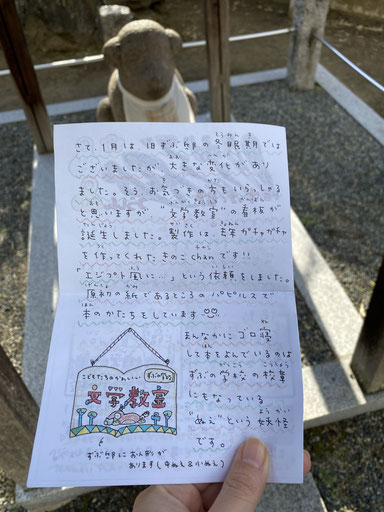 さて、1月は 旧ずぶ邸の冬眠期では
とうみんき
ございましたが 大きな変化があり
ました。そう、お気づきの方もいらっしゃる
と思いますが "文学教室"の看板が
誕生しました。製作は、ガチャガチャ
を作ってくれた きのこchanです!!
「エジプト風に…」という依頼をしました。
原初の紙であるところのパピルスで
本のかたちをしています
あんなにゴロ寝
して本をよんでいるのは
ずぶの学校の校章
にもなっている
"ぬえ"という妖怪
です。
こどもたちのかわいい
ずぶの学校
文学教室
ずぶ邸にお人形が
あります(中ぬえ&小ぬえ)